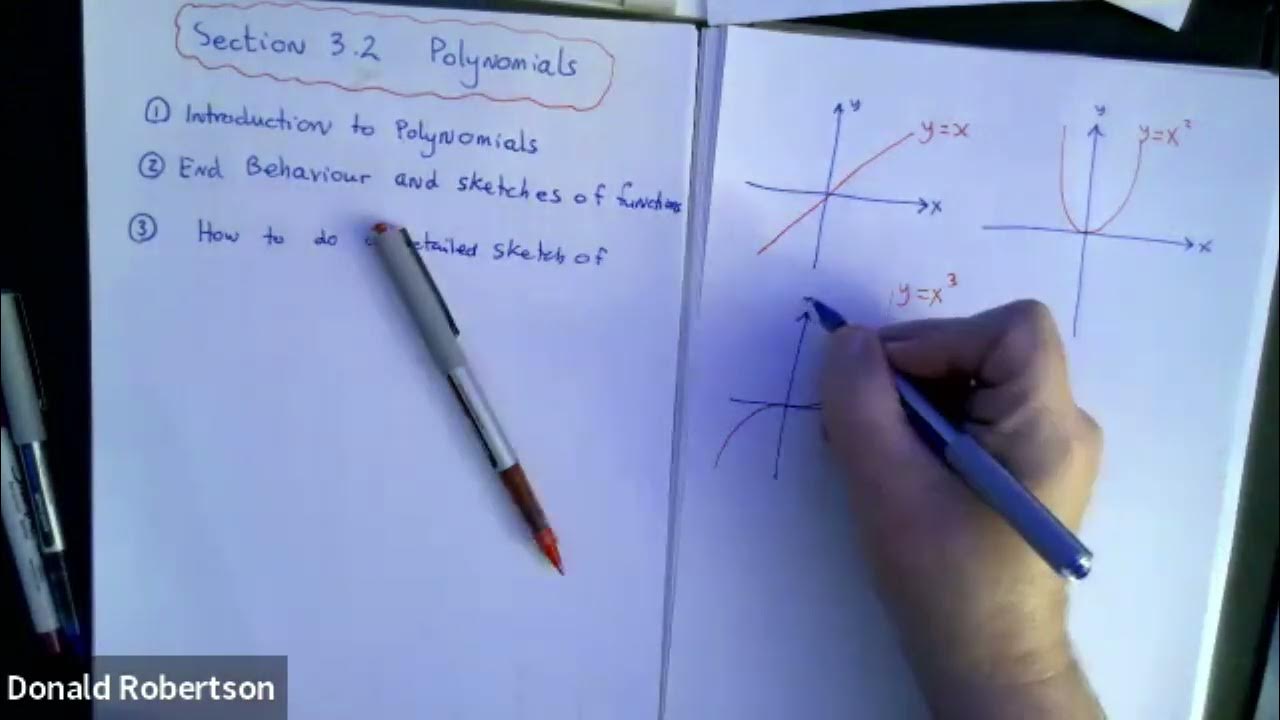 Section 3.2 Polynomials
① Introduction to Polynomials
② End Behaviour and sketches of functions
③ How to do detailed sketch of
y
y=x
x
y
y=x²
x
y=x³
Donald Robertson